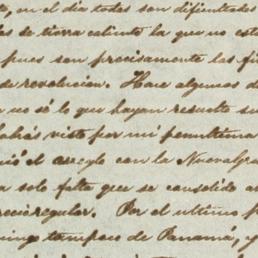 , en el dia todas son dificultades
de tierra caliente la que no est
pues son precisamente las fi
de revolucion. Hace algunos d
no sé lo que hayan resuelto s
habrás visto por mi penultima
el arreglo con la Nueva Gra
solo falta que se consolide
regular. Por el ultimo p
tampoco de Panamá, y